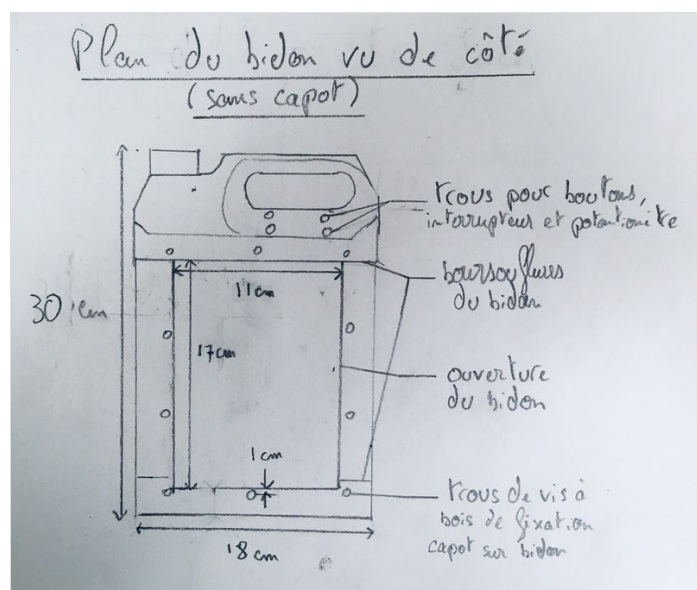 Plan du bidon vu de côté
(sans capot)
trous pour boutons,
interrupteur et potentiomètre
boursouflures
du bidon
11 cm
30 cm
17 cm
ouverture
du bidon
1 cm
trous de vis à
bois de fixation
capot sur bidon
18 cm